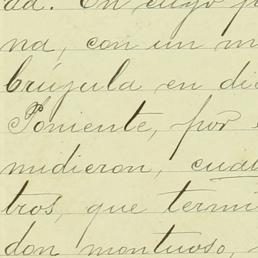 da. En cuyo p
na, con un m
brújula en di
Poniente, por
midieron, cua
tros, que termi
don montuoso,